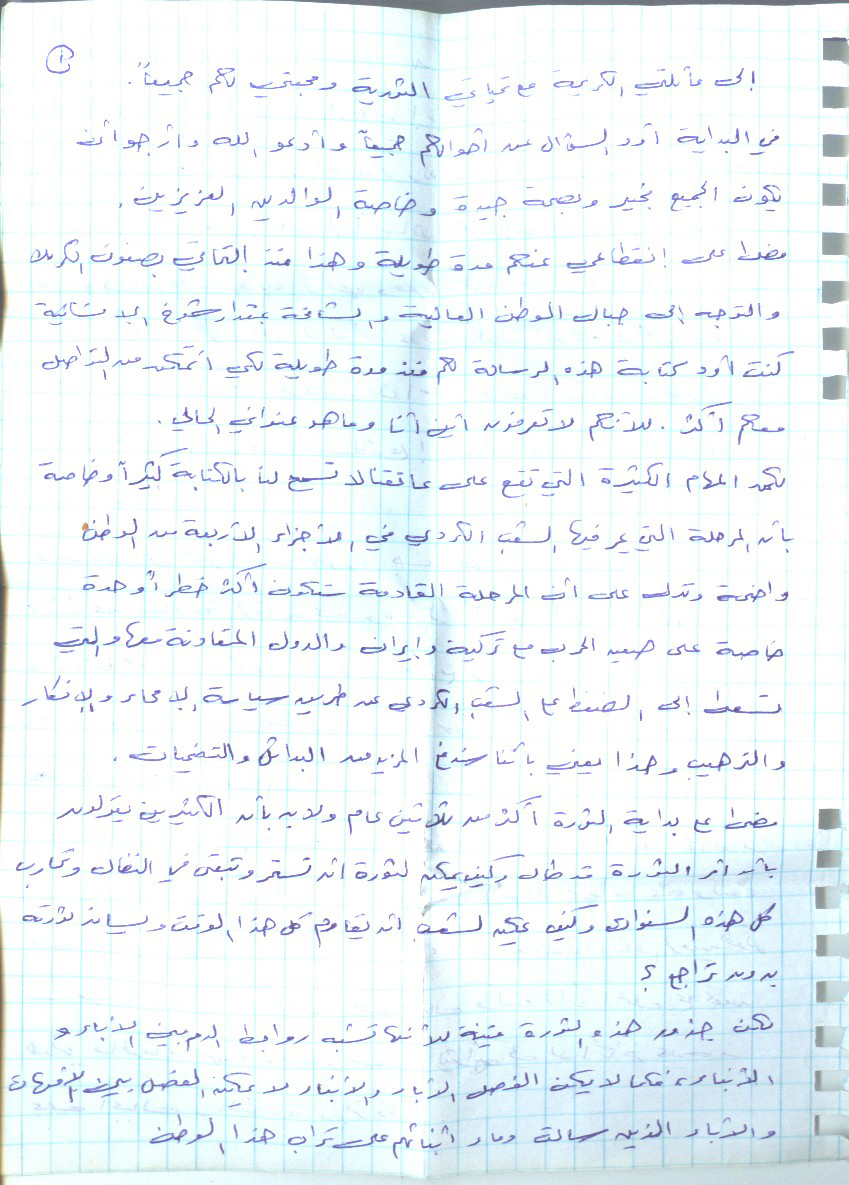 ١
إلى عائلتي الكريمة مع تحياتي الثورية ومحبتي لكم جميعاً.
في البداية أود السؤال عن أحوالكم جميعاً وأدعو الله وأرجو أن
يكون الجميع بخير وبصحة جيدة وخاصة الوالدين العزيزين.
مضى على إنقطاعي عنكم مدة طويلة وهذا منذ إلتحاقي بصفوف الكريلا
والتوجه إلى جبال الوطن العالية والشامخة بمقدار شموخ الإنسانية
كنت أود كتابة هذه الرسالة لكم منذ مدة طويلة لكي أتمكن من التواصل
معكم أكثر. لأنكم لا تعرفون أين أنا وما هو عنواني الحالي.
لكن المهام الكثيرة التي تقع على عاتقنا لا تسمح لنا بالكتابة كثيراً وخاصة
بأن المرحلة التي يمر فيها الشعب الكردي في الأجزاء الأربعة من الوطن
واضحة وتدل على أن المرحلة القادمة ستكون أكثر خطراً وحدة
خاصة على صعيد الحرب مع تركية وإيران والدول المتعاونة معها والتي
تسعى إلى الضغط على الشعب الكردي عن طريق سياسة الإمحاء والإنكار
والترهيب وهذا يعني بأننا سندفع المزيد من البدائل والتضحيات.
مضى على بداية الثورة أكثر من ثلاثين عام ولا بد بأن الكثيرين يقولون
بأن أثر الثورة قد طال وكيف يمكن لثورة أن تستمر وتبقى في النضال وتحارب
كل هذه السنوات وكيف يمكن لشعب أن يقاوم كل هذا الوقت ويساند ثورته
بدون تراجع؟
لكن جذور هذه الثورة متينة لأنها تشبه روابط الدم بين الآباء و
الأبناء، فكما لا يمكن الفصل الآباء والأبناء لا يمكن الفصل بين الأمهات
والآباء الذين سالت دماء أبنائهم على تراب هذا الوطن